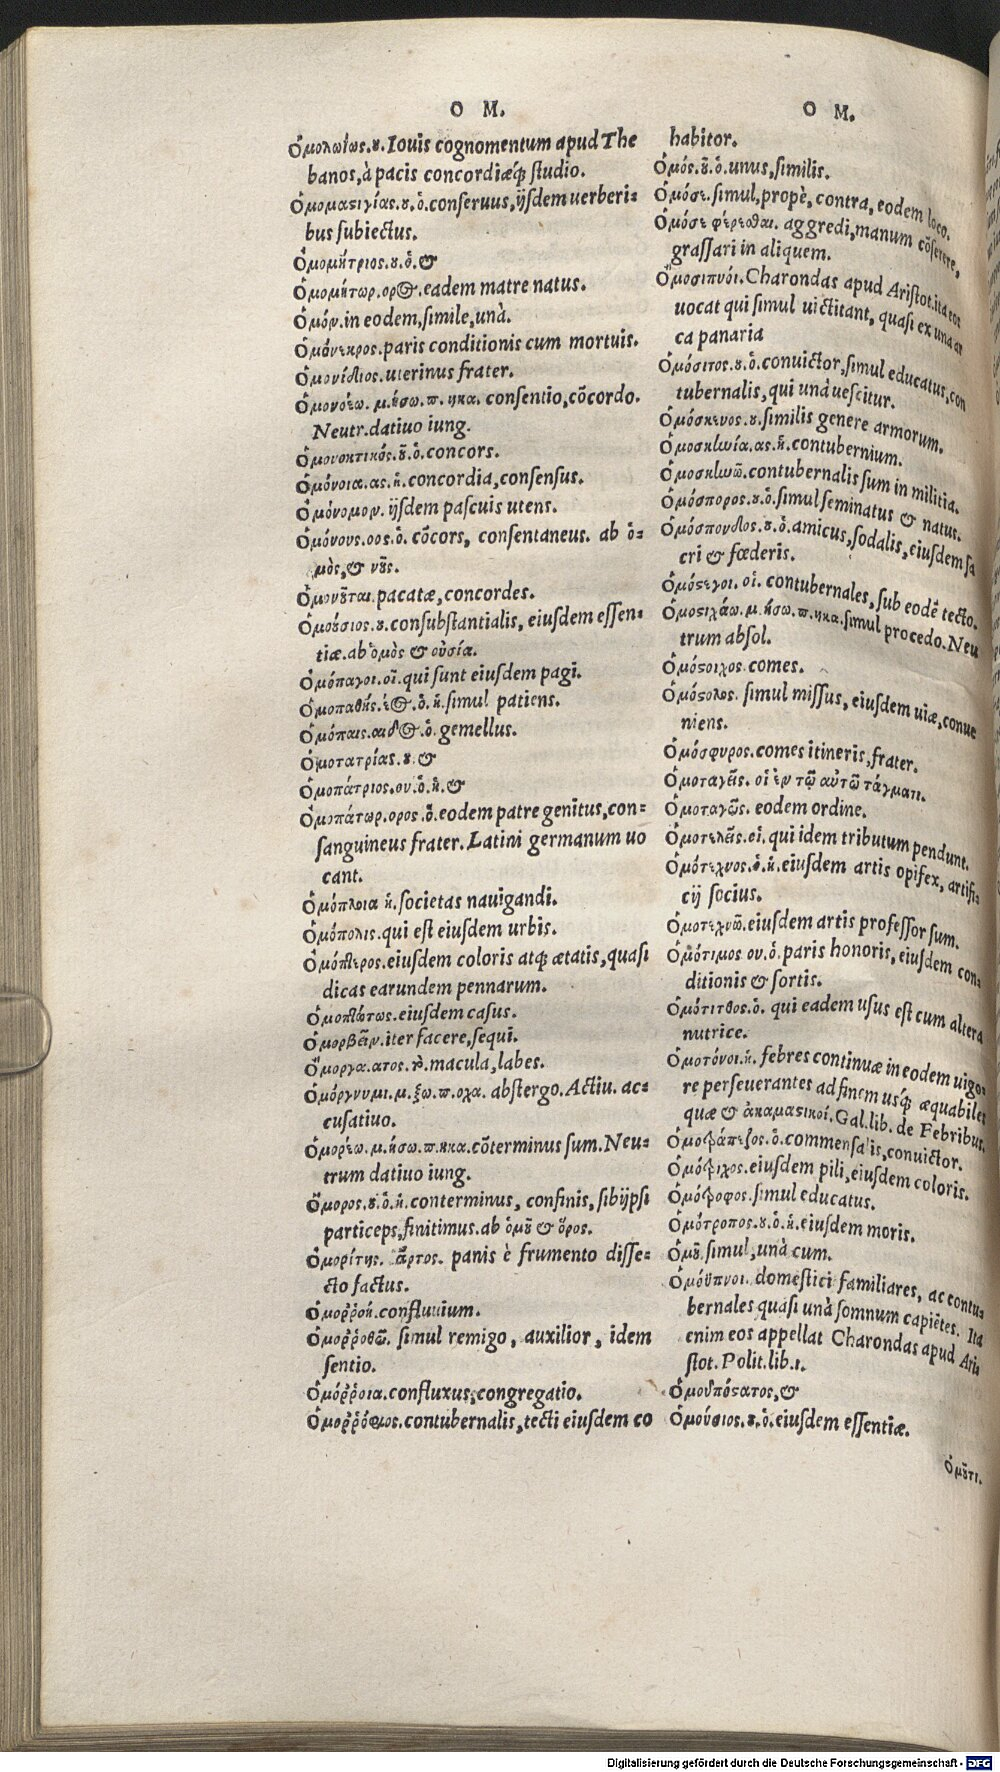 O M.
Ὁμολώϊος.ου. Iouis cognomentum apud The
banos, à pacis concordiæq́; studio.
Ὁμομαστιγίας.ου.ὁ. conseruus, ijsdem uerberi=
bus subiectus.
Ὁμομήτριος.ου.ὁ. &
Ὁμομήτωρ.ορος. eadem matre natus.
Ὁμόν. in eodem, simile, unà.
Ὁμόνεκρος. paris conditionis cum mortuis.
Ὁμονίδιος. uterinus frater.
Ὁμονοέω. μ.ήσω.π.ηκα. consentio, cōcordo.
Neutr. datiuo iung.
Ὁμονοητικός.οῦ.ὁ. concors.
Ὁμόνοια.ας.ἡ. concordia, consensus.
Ὁμόνομον. ijsdem pascuis utens.
Ὁμόνους.οος.ὁ. cōcors, consentaneus. ab ὁ=
μὸς, & νοῦς.
Ὁμονοῦται. pacatæ, concordes.
Ὁμούσιος.ου. consubstantialis, eiusdem essen=
tiæ. ab ὁμὸς & οὐσία.
Ὁμόπαγοι.οἱ. qui sunt eiusdem pagi.
Ὁμοπαθής.έος.ὁ.ἡ. simul patiens.
Ὁμόπαις.αιδος.ὁ. gemellus.
Ὁμοπατρίας.ου &
Ὁμοπάτριος.ου.ὁ.ἡ. &
Ὁμοπάτωρ.ορος.ὁ. eodem patre genitus, con=
sanguineus frater. Latini germanum uo
cant.
Ὁμόπλοια ἡ. societas nauigandi.
Ὁμόπολις. qui est eiusdem urbis.
Ὁμόπτερος. eiusdem coloris atq; ætatis, quasi
dicas earundem pennarum.
Ὁμοπτώτως. eiusdem casus.
Ὁμορβεῖν. iter facere, sequi.
Ὅμοργα.ατος.τὸ. macula, labes.
Ὁμόργνυμι.μ.ξω.π.οχα. abstergo. Actiu. ac=
cusatiuo.
Ὁμορέω.μ.ήσω.π.ηκα. cōterminus sum. Neu=
trum datiuo iung.
Ὅμορος.ου.ὁ.ἡ. conterminus, confinis, sibijpsi
particeps, finitimus. ab ὁμοῦ & ὅρος.
Ὁμορίτης. ἄρτος. panis è frumento disse=
cto factus.
Ὁμοῤῥοή. confluuium.
Ὁμοῤῥοθῶ. simul remigo, auxilior, idem
sentio.
Ὁμόῤῥοια. confluxus, congregatio.
Ὁμοῤῥόφιος. contubernalis, tecti eiusdem co
O M.
habitor.
Ὁμός.οῦ.ὁ. unus, similis.
Ὁμόσε. simul, propè, contra, eodem loco.
Ὁμόσε φέρεσθαι. aggredi, manum cōserere,
grassari in aliquem.
Ὁμοσιπνόι. Charondas apud Aristot. ita eos
uocat qui simul uictitant, quasi ex una ar
ca panaria
Ὁμόσιτος.ου.ὁ. conuictor, simul educatus, con
tubernalis, qui unà uescitur.
Ὁμόσκευος.ου. similis genere armorum.
Ὁμοσκηνία.ας.ἡ. contubernium.
Ὁμοσκηνῶ. contubernalis sum in militia.
Ὁμόσπορος.ου.ὁ. simul seminatus & natus.
Ὁμόσπονδος.ου.ὁ. amicus, sodalis, eiusdem sa
cri & fœderis.
Ὁμόστεγοι. οἱ. contubernales, sub eodē tecto.
Ὁμοστιχάω.μ.ήσω.π.ηκα. simul procedo. Neu
trum absol.
Ὁμόστοιχος. comes.
Ὁμόστολος. simul missus, eiusdem uiæ, conue
niens.
Ὁμόσφυρος. comes itineris, frater.
Ὁμοταγεῖς. οἱ ἐν τῷ αὐτῷ τάγματι.
Ὁμοταγῶς. eodem ordine.
Ὁμοτελεῖς.οἱ. qui idem tributum pendunt.
Ὁμότεχνος.ὁ.ἡ. eiusdem artis opifex, artifi=
cij socius.
Ὁμοτεχνῶ. eiusdem artis professor sum.
Ὁμότιμος ου.ὁ. paris honoris, eiusdem con=
ditionis & sortis.
Ὁμότιτθος.ὁ. qui eadem usus est cum altera
nutrice.
Ὁμοτόνοι.ἡ. febres continuæ in eodem uigo=
re perseuerantes ad finem usq́; æquabiles
quæ & ἀκμαστικοί. Gal. lib. de Febribus.
Ὁμοτράπεζος.ὁ. commensalis, conuictor.
Ὁμότριχος. eiusdem pili, eiusdem coloris.
Ὁμότροφος. simul educatus.
Ὁμότροπος.ου.ὁ.ἡ. eiusdem moris.
Ὁμοῦ. simul, unà cum.
Ὁμόϋπνοι. domestici familiares, ac contu=
bernales quasi unà somnum capiētes. Ita
enim eos appellat Charondas apud Aris
stot. Polit. lib. 1.
Ὁμοϋπόστατος, &
Ὁμούσιος.ου.ὁ. eiusdem essentiæ.
Ὁμοῦτι.
Digitalisierung gefördert durch die Deutsche Forschungsgemeinschaft - DFG